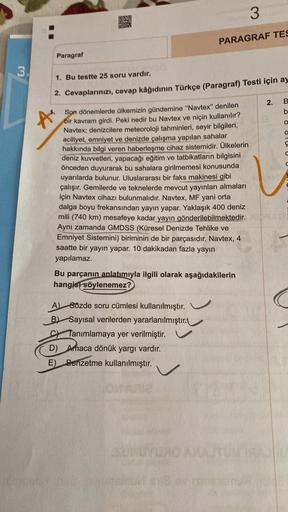 3
PARAGRAF TES
3.
Paragraf
1. Bu testte 25 soru vardır.
2. Cevaplarınızı, cevap kâğıdının Türkçe (Paragraf) Testi için ay
Son dönemlerde ülkemizin gündemine "Navtex" denilen
bir kavram girdi. Peki nedir bu Navtex ve niçin kullanılır?
Navtex; denizcilere meteoroloji tahminleri, seyir bilgileri,
aciliyet, emniyet ve denizde çalışma yapılan sahalar
hakkında bilgi veren haberleşme cihaz sistemidir. Ülkelerin
deniz kuvvetleri, yapacağı eğitim ve tatbikatların bilgisini
önceden duyurarak bu sahalara girilmemesi konusunda
uyarılarda bulunur. Uluslararası bir faks makinesi gibi
çalışır. Gemilerde ve teknelerde mevcut yayınları almaları
için Navtex cihazı bulunmalıdır. Navtex, MF yani orta
dalga boyu frekansından yayın yapar. Yaklaşık 400 deniz
mili (740 km) mesafeye kadar yayın gönderilebilmektedir.
Aynı zamanda GMDSS (Küresel Denizde Tehlike ve
Emniyet Sistemini) biriminin de bir parçasıdır. Navtex, 4
saatte bir yayın yapar. 10 dakikadan fazla yayın
yapılamaz.
Bu parçanın anlatımıyla ilgili olarak aşağıdakilerin
hangisi söylenemez?
A) Sözde soru cümlesi kullanılmıştır.
B) Sayısal verilerden yararlanılmıştır.
C) Tanımlamaya yer verilmiştir.
D) Amaca dönük yargı vardır.
E) Benzetme kullanılmıştır.
2.